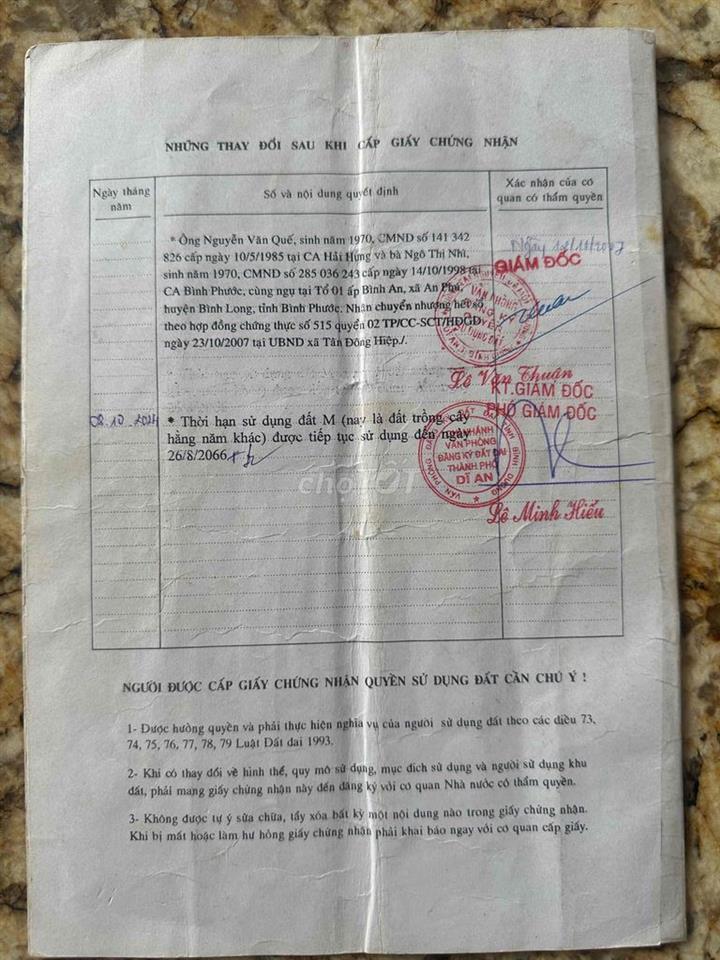 NHỮNG THAY ĐỔI SAU KHI CẤP GIẤY CHỨNG NHẬN
Ngày tháng năm
Số và nội dung quyết định
Xác nhận của cơ quan có thẩm quyền
* Ông Nguyễn Văn Quế, sinh năm 1970, CMND số 141 342
826 cấp ngày 10/5/1985 tại CA Hải Hưng và bà Ngô Thị Nhì,
sinh năm 1970, CMND số 285 036 243 cấp ngày 14/10/1998 tại
CA Bình Phước, cùng ngụ tại Tổ 01 ấp Bình An, xã An Phú,
huyện Bình Long, tỉnh Bình Phước. Nhận chuyển nhượng hết số
theo hợp đồng chứng thực số 515 quyển 02 TP/CC-SCT/HĐGD
ngày 23/10/2007 tại UBND xã Tân Đông Hiệp./.
Ngày
GIÁM ĐỐC
VĂN PHÒNG
ĐĂNG KÝ
QUYỀN
SỬ DỤNG ĐẤT
Lê Văn Thuân
08.10.2024
* Thời hạn sử dụng đất M (nay là đất trồng cây
hằng năm khác) được tiếp tục sử dụng đến ngày
26/8/2066
KT.GIÁM ĐỐC
PHÓ GIÁM ĐỐC
CHI NHÁNH
VĂN PHÒNG
ĐĂNG KÝ ĐẤT ĐAI
THÀNH PHỐ
DĨ AN
Lê Minh Hiếu
chợTỐT
NGƯỜI ĐƯỢC CẤP GIẤY CHỨNG NHẬN QUYỀN SỬ DỤNG ĐẤT CẦN CHÚ Ý !
1- Được hưởng quyền và phải thực hiện nghĩa vụ của người sử dụng đất theo các điều 73,
74, 75, 76, 77, 78, 79 Luật Đất đai 1993.
2- Khi có thay đổi về hình thể, quy mô sử dụng, mục đích sử dụng và người sử dụng khu
đất, phải mang giấy chứng nhận này đến đăng ký với cơ quan Nhà nước có thẩm quyền.
3- Không được tự ý sửa chữa, tẩy xóa bất kỳ một nội dung nào trong giấy chứng nhận.
Khi bị mất hoặc làm hư hỏng giấy chứng nhận phải khai báo ngay với cơ quan cấp giấy.